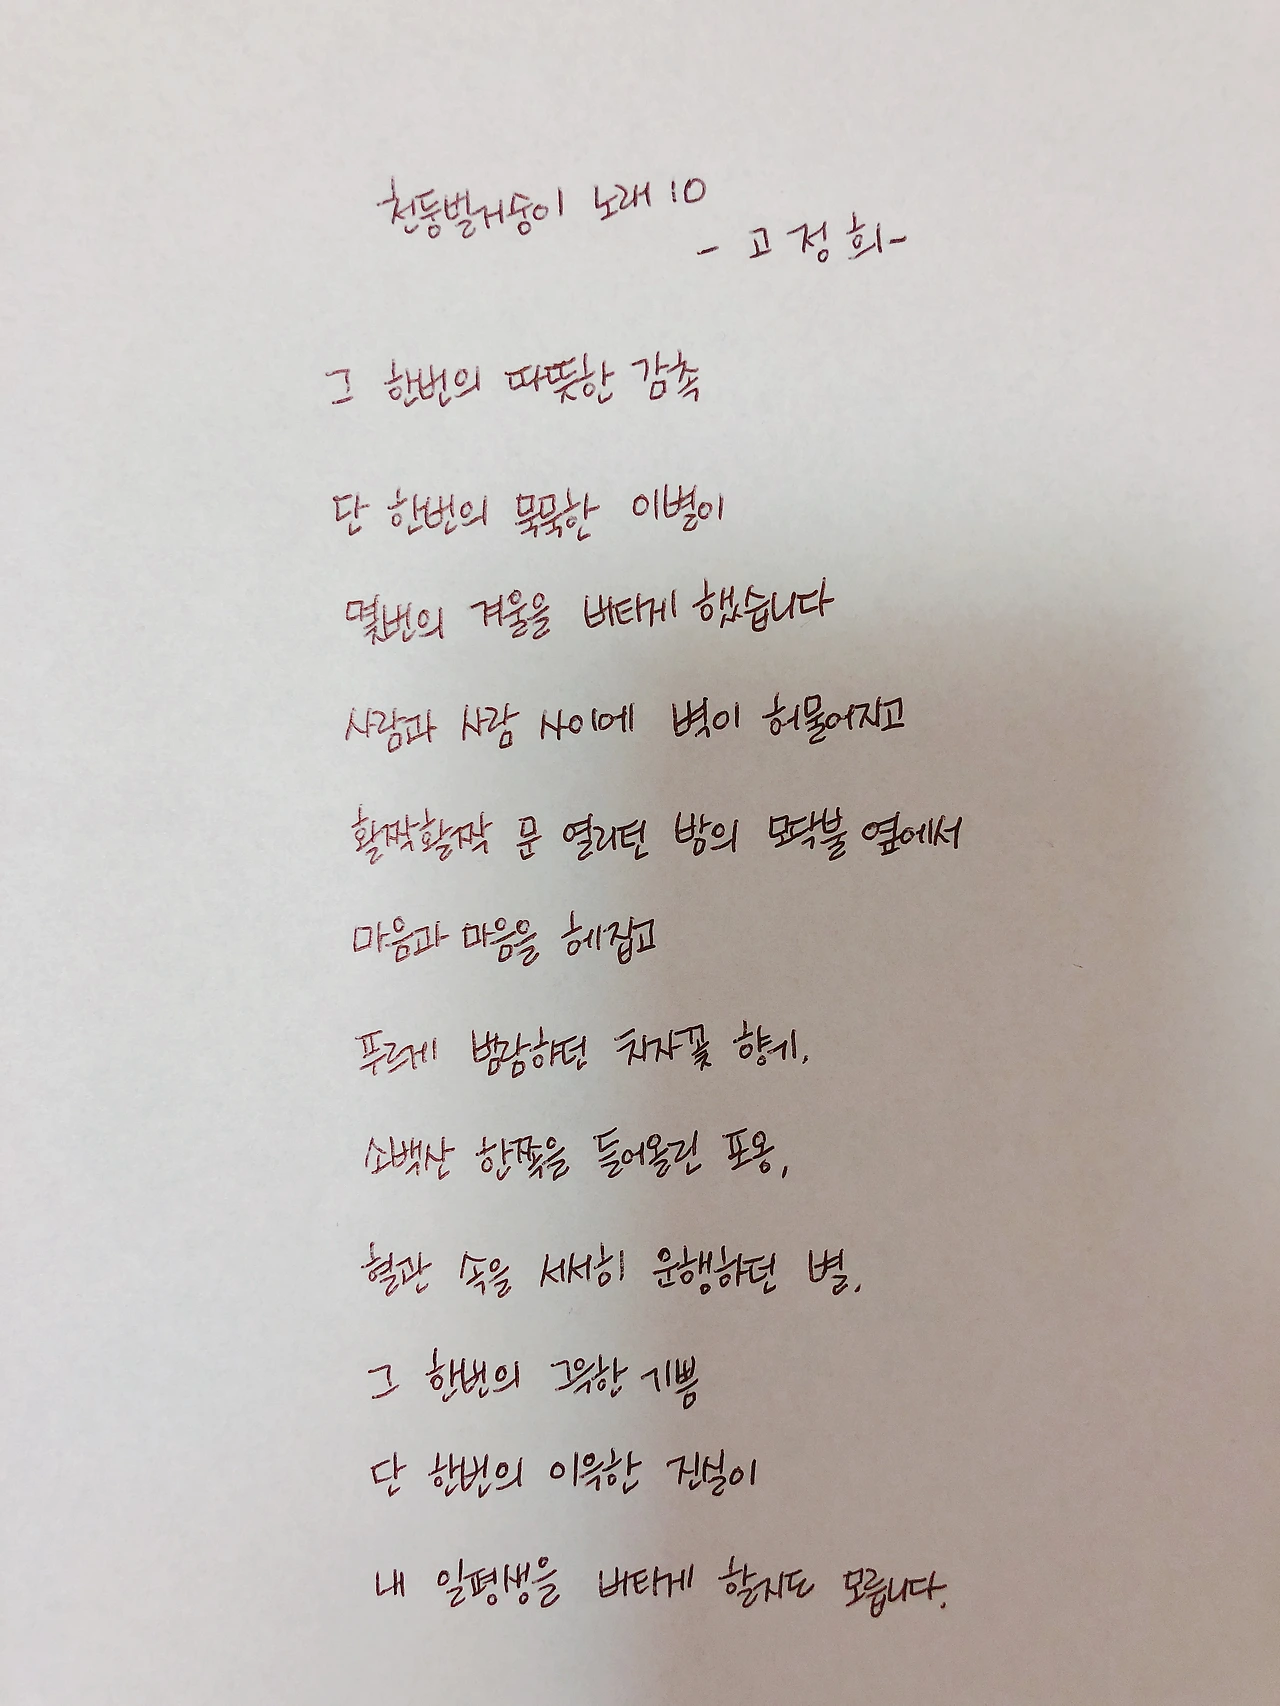 천둥벌거숭이 노래 10
- 고정희-
그 한번의 따뜻한 감촉
단 한번의 묵묵한 이별이
몇번의 겨울을 버티게 했습니다
사람과 사람 사이에 벽이 허물어지고
활짝활짝 문 열리던 밤의 모닥불 옆에서
마음과 마음을 헤집고
푸르게 범람하던 치자꽃 향기,
소백산 한쪽을 들어올린 포옹,
혈관 속을 서서히 운행하던 별,
그 한번의 그윽한 기쁨
단 한번의 이윽한 진실이
내 일평생을 버티게 할지도 모릅니다.